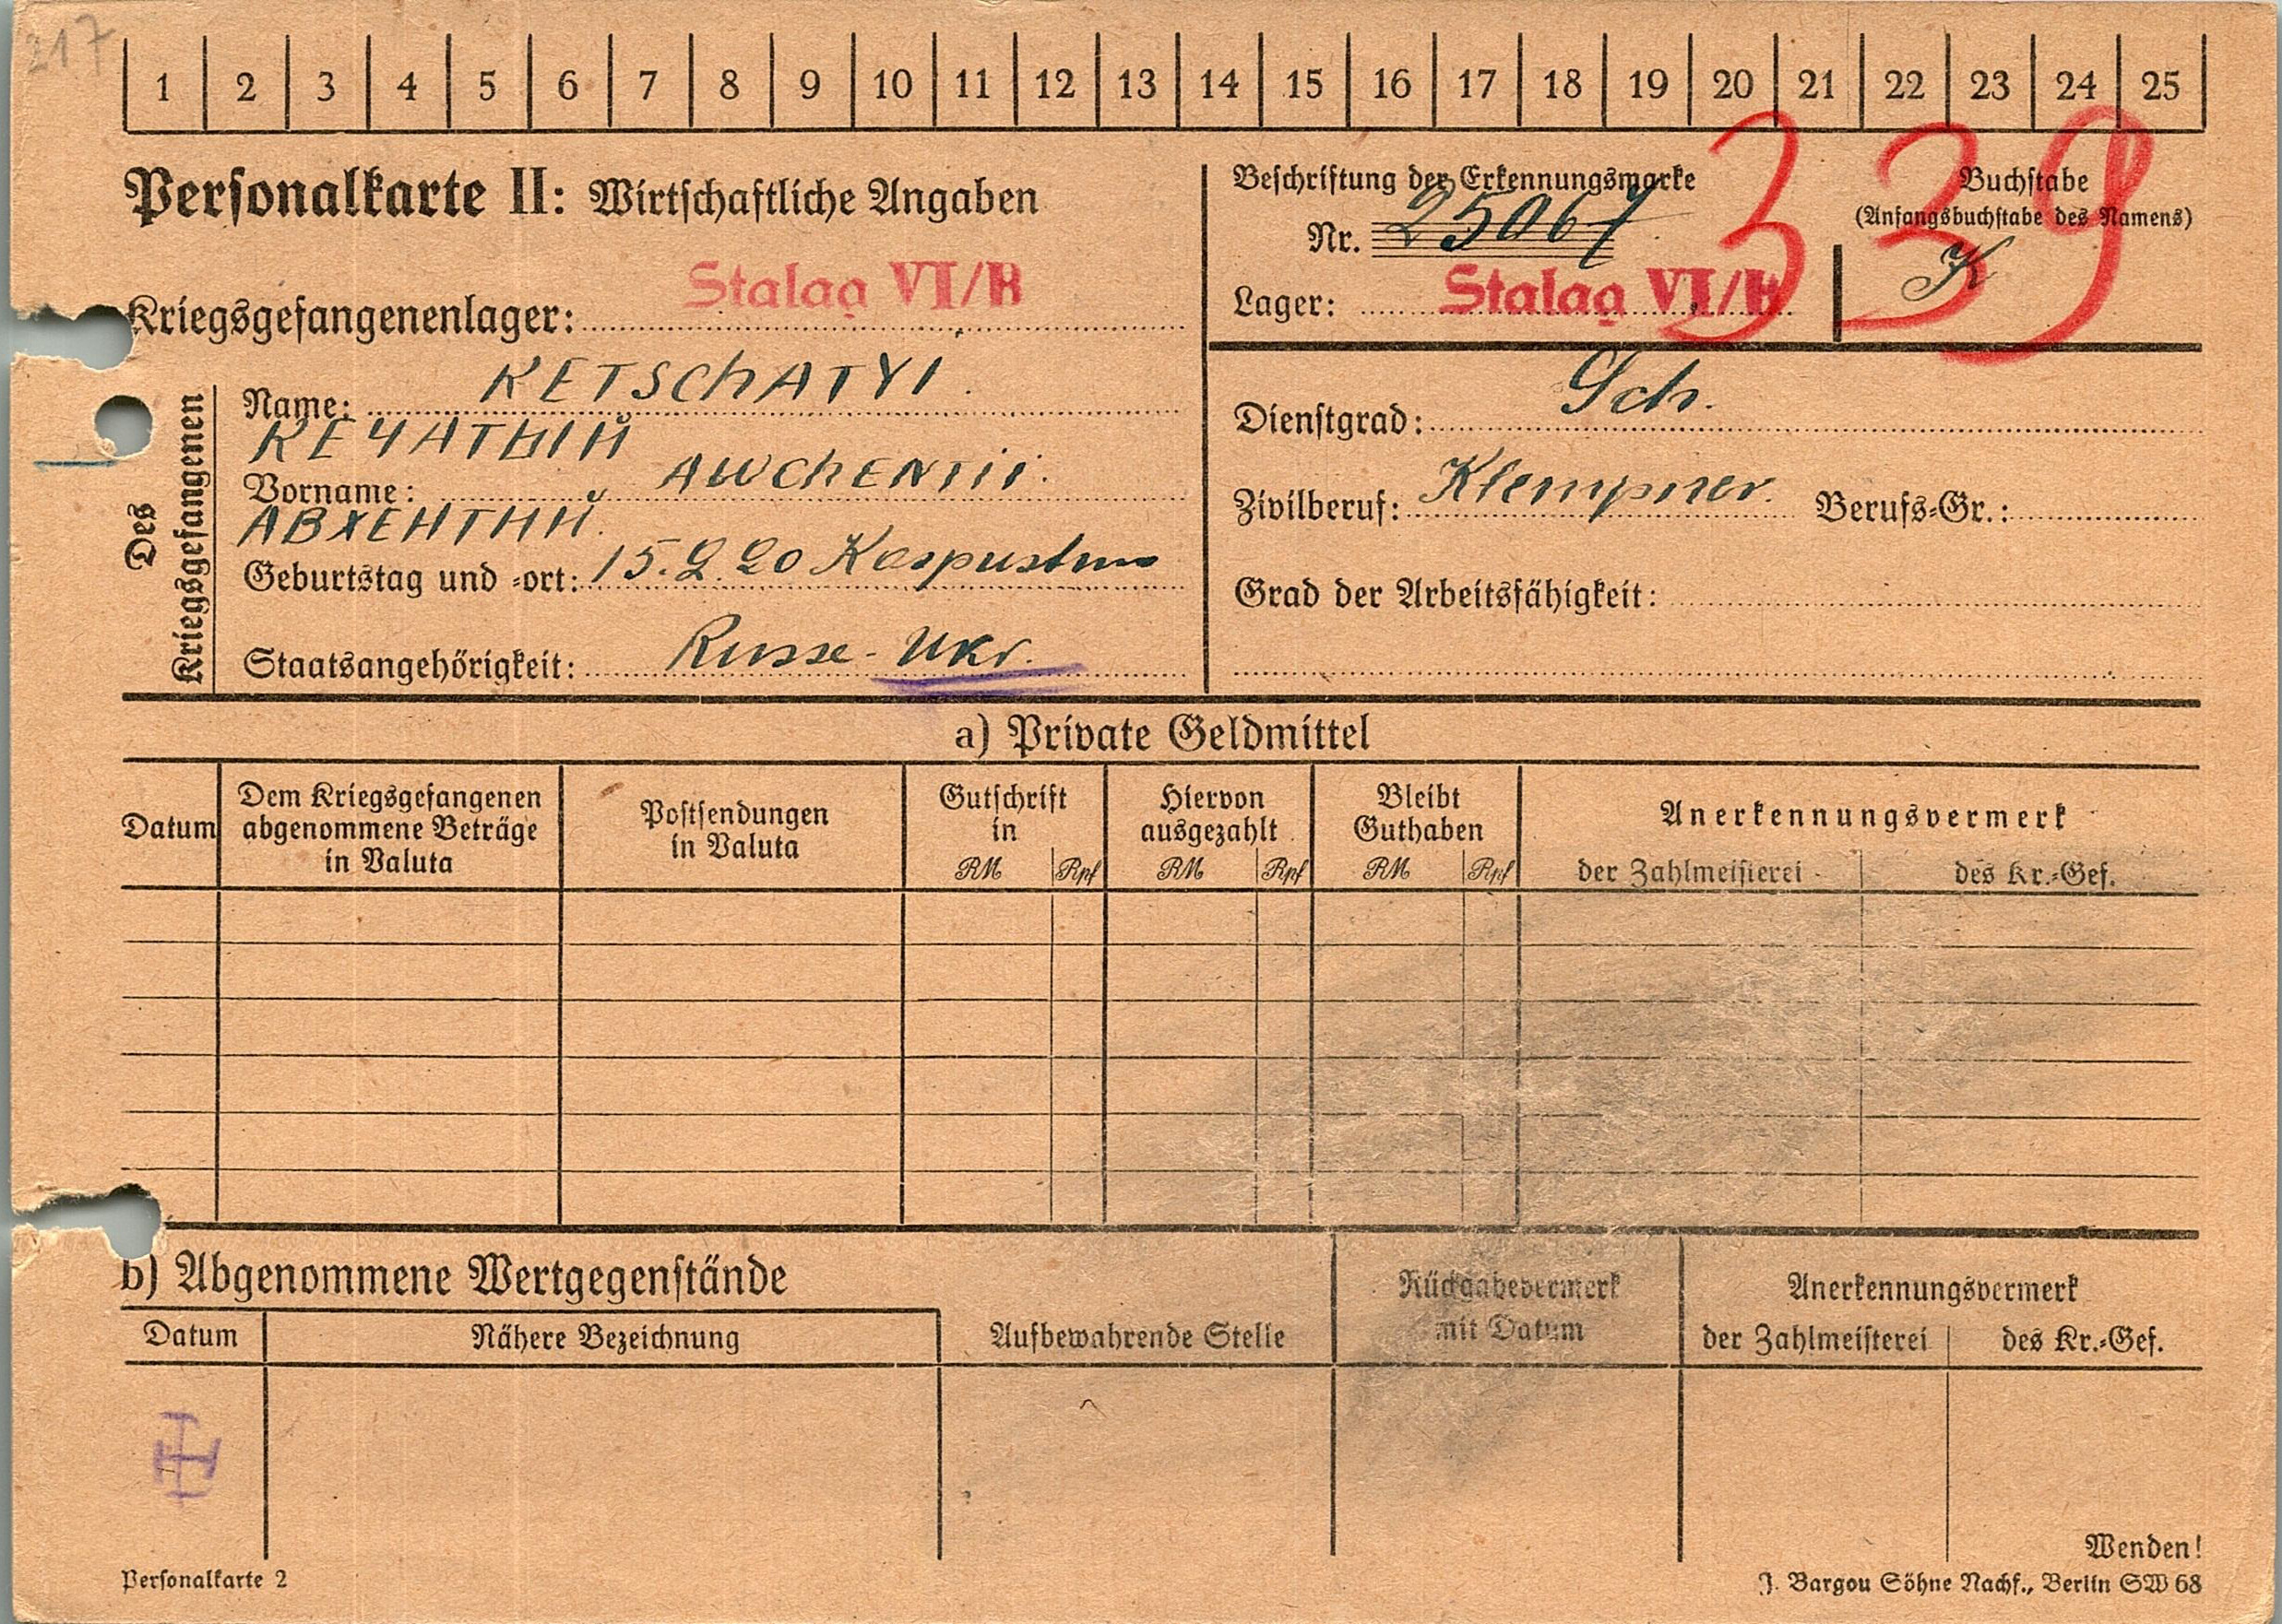 217
1 2 3 4 5 6 7 8 9 10 11 12 13 14 15 16 17 18 19 20 21 22 23 24 25
339
Personalkarte II: Wirtschaftliche Angaben
Kriegsgefangenenlager: Stalag VI/B
Beschriftung der Erkennungsmarke
Nr. 25067
Lager: Stalag VI/B
Buchstabe
(Anfangsbuchstabe des Namens)
K
Des Kriegsgefangenen
Name: KETSCHATYI.
КЕЧАТЫЙ
Vorname: AWCHENTII.
АВХЕНТИЙ.
Geburtstag und -ort: 15.2.20
Staatsangehörigkeit: Russe-Ukr.
Dienstgrad: Sch.
Zivilberuf: Klempner. Berufs-Gr.:
Grad der Arbeitsfähigkeit:
a) Private Geldmittel
Datum
Dem Kriegsgefangenen
abgenommene Beträge
in Valuta
Postsendungen
in Valuta
Gutschrift
in
RM Rpf
Hiervon
ausgezahlt
RM Rpf
Bleibt
Guthaben
RM Rpf
Anerkennungsvermerk
der Zahlmeisterei des Kr.-Gef.
b) Abgenommene Wertgegenstände
Datum
Nähere Bezeichnung
Aufbewahrende Stelle
Rückgabevermerk
mit Datum
Anerkennungsvermerk
der Zahlmeisterei des Kr.-Gef.
Wenden!
Personalkarte 2
J. Bargou Söhne Nachf., Berlin SW 68